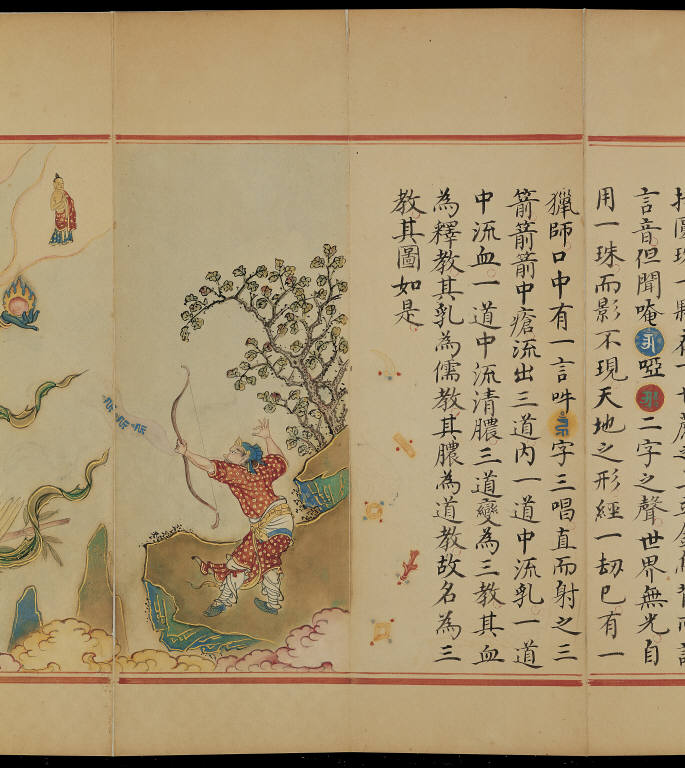 言音但聞唵啞二字之聲世界無光自
用一珠而影不現天地之形經一刼已有一
獵師口中有一言吽字三唱直而射之三
箭箭箭中瘡流出三道內一道中流乳一道
中流血一道中流清膿三道變為三教其血
為釋教其乳為儒教其膿為道教故名為三
教其圖如是